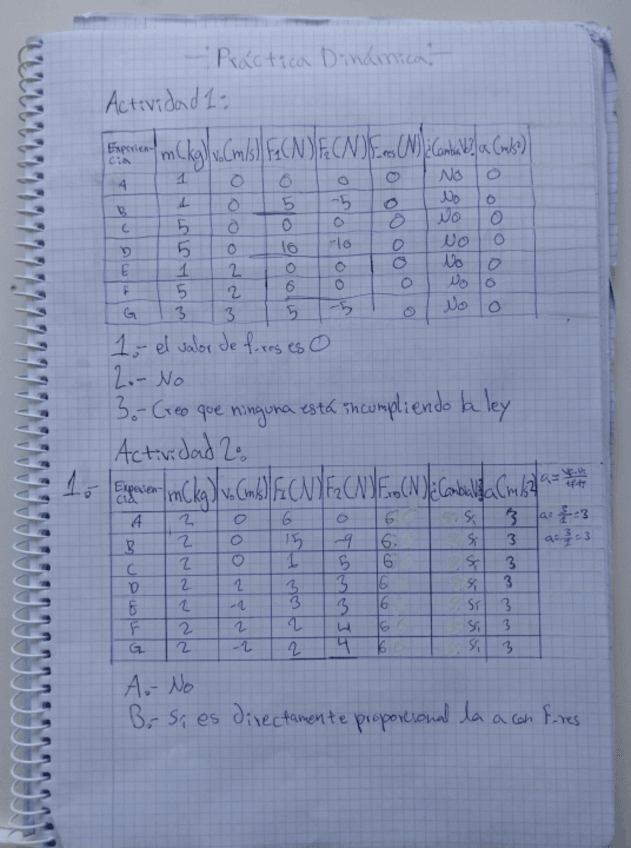 -: Práctica Dinámica: -
Actividad 1:
Experiencia m(kg) v₀(m/s) F₁(N) F₂(N) F_res(N) ¿Cambia v? a(m/s²)
A 1 0 0 0 0 No 0
B 1 0 5 -5 0 No 0
C 5 0 0 0 0 No 0
D 5 0 10 -10 0 No 0
E 1 2 0 0 0 No 0
F 5 2 0 0 0 No 0
G 3 3 5 -5 0 No 0
1.- el valor de f-res es 0
2.- No
3.- Creo que ninguna está incumpliendo la ley
Actividad 2:
1.- Experiencia m(kg) v₀(m/s) F₁(N) F₂(N) F_res(N) ¿Cambia v? a(m/s²) a=
A 2 0 6 0 6 Si 3
B 2 0 15 -9 6 Si 3
C 2 0 1 5 6 Si 3
D 2 2 3 3 6 Si 3
E 2 -2 3 3 6 Si 3
F 2 2 2 4 6 Si 3
G 2 -2 2 4 6 Si 3
A.- No
B.- Si es directamente proporcional la a con F-res